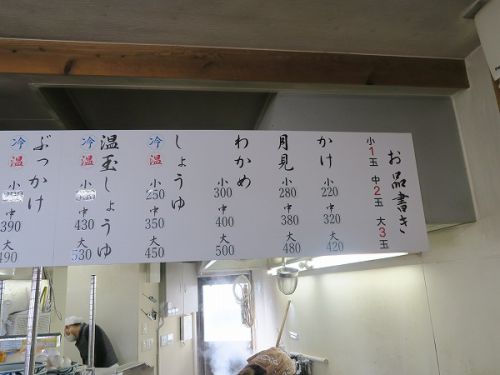 お品書き
小1玉 中2玉 大3玉
かけ
小220 中320 大420
月見
小280 中380 大480
わかめ
小300 中400 大500
しょうゆ
冷温
小250 中350 大450
温玉しょうゆ
冷温
小 中430 大530
ぶっかけ
冷温
小 中390 大490